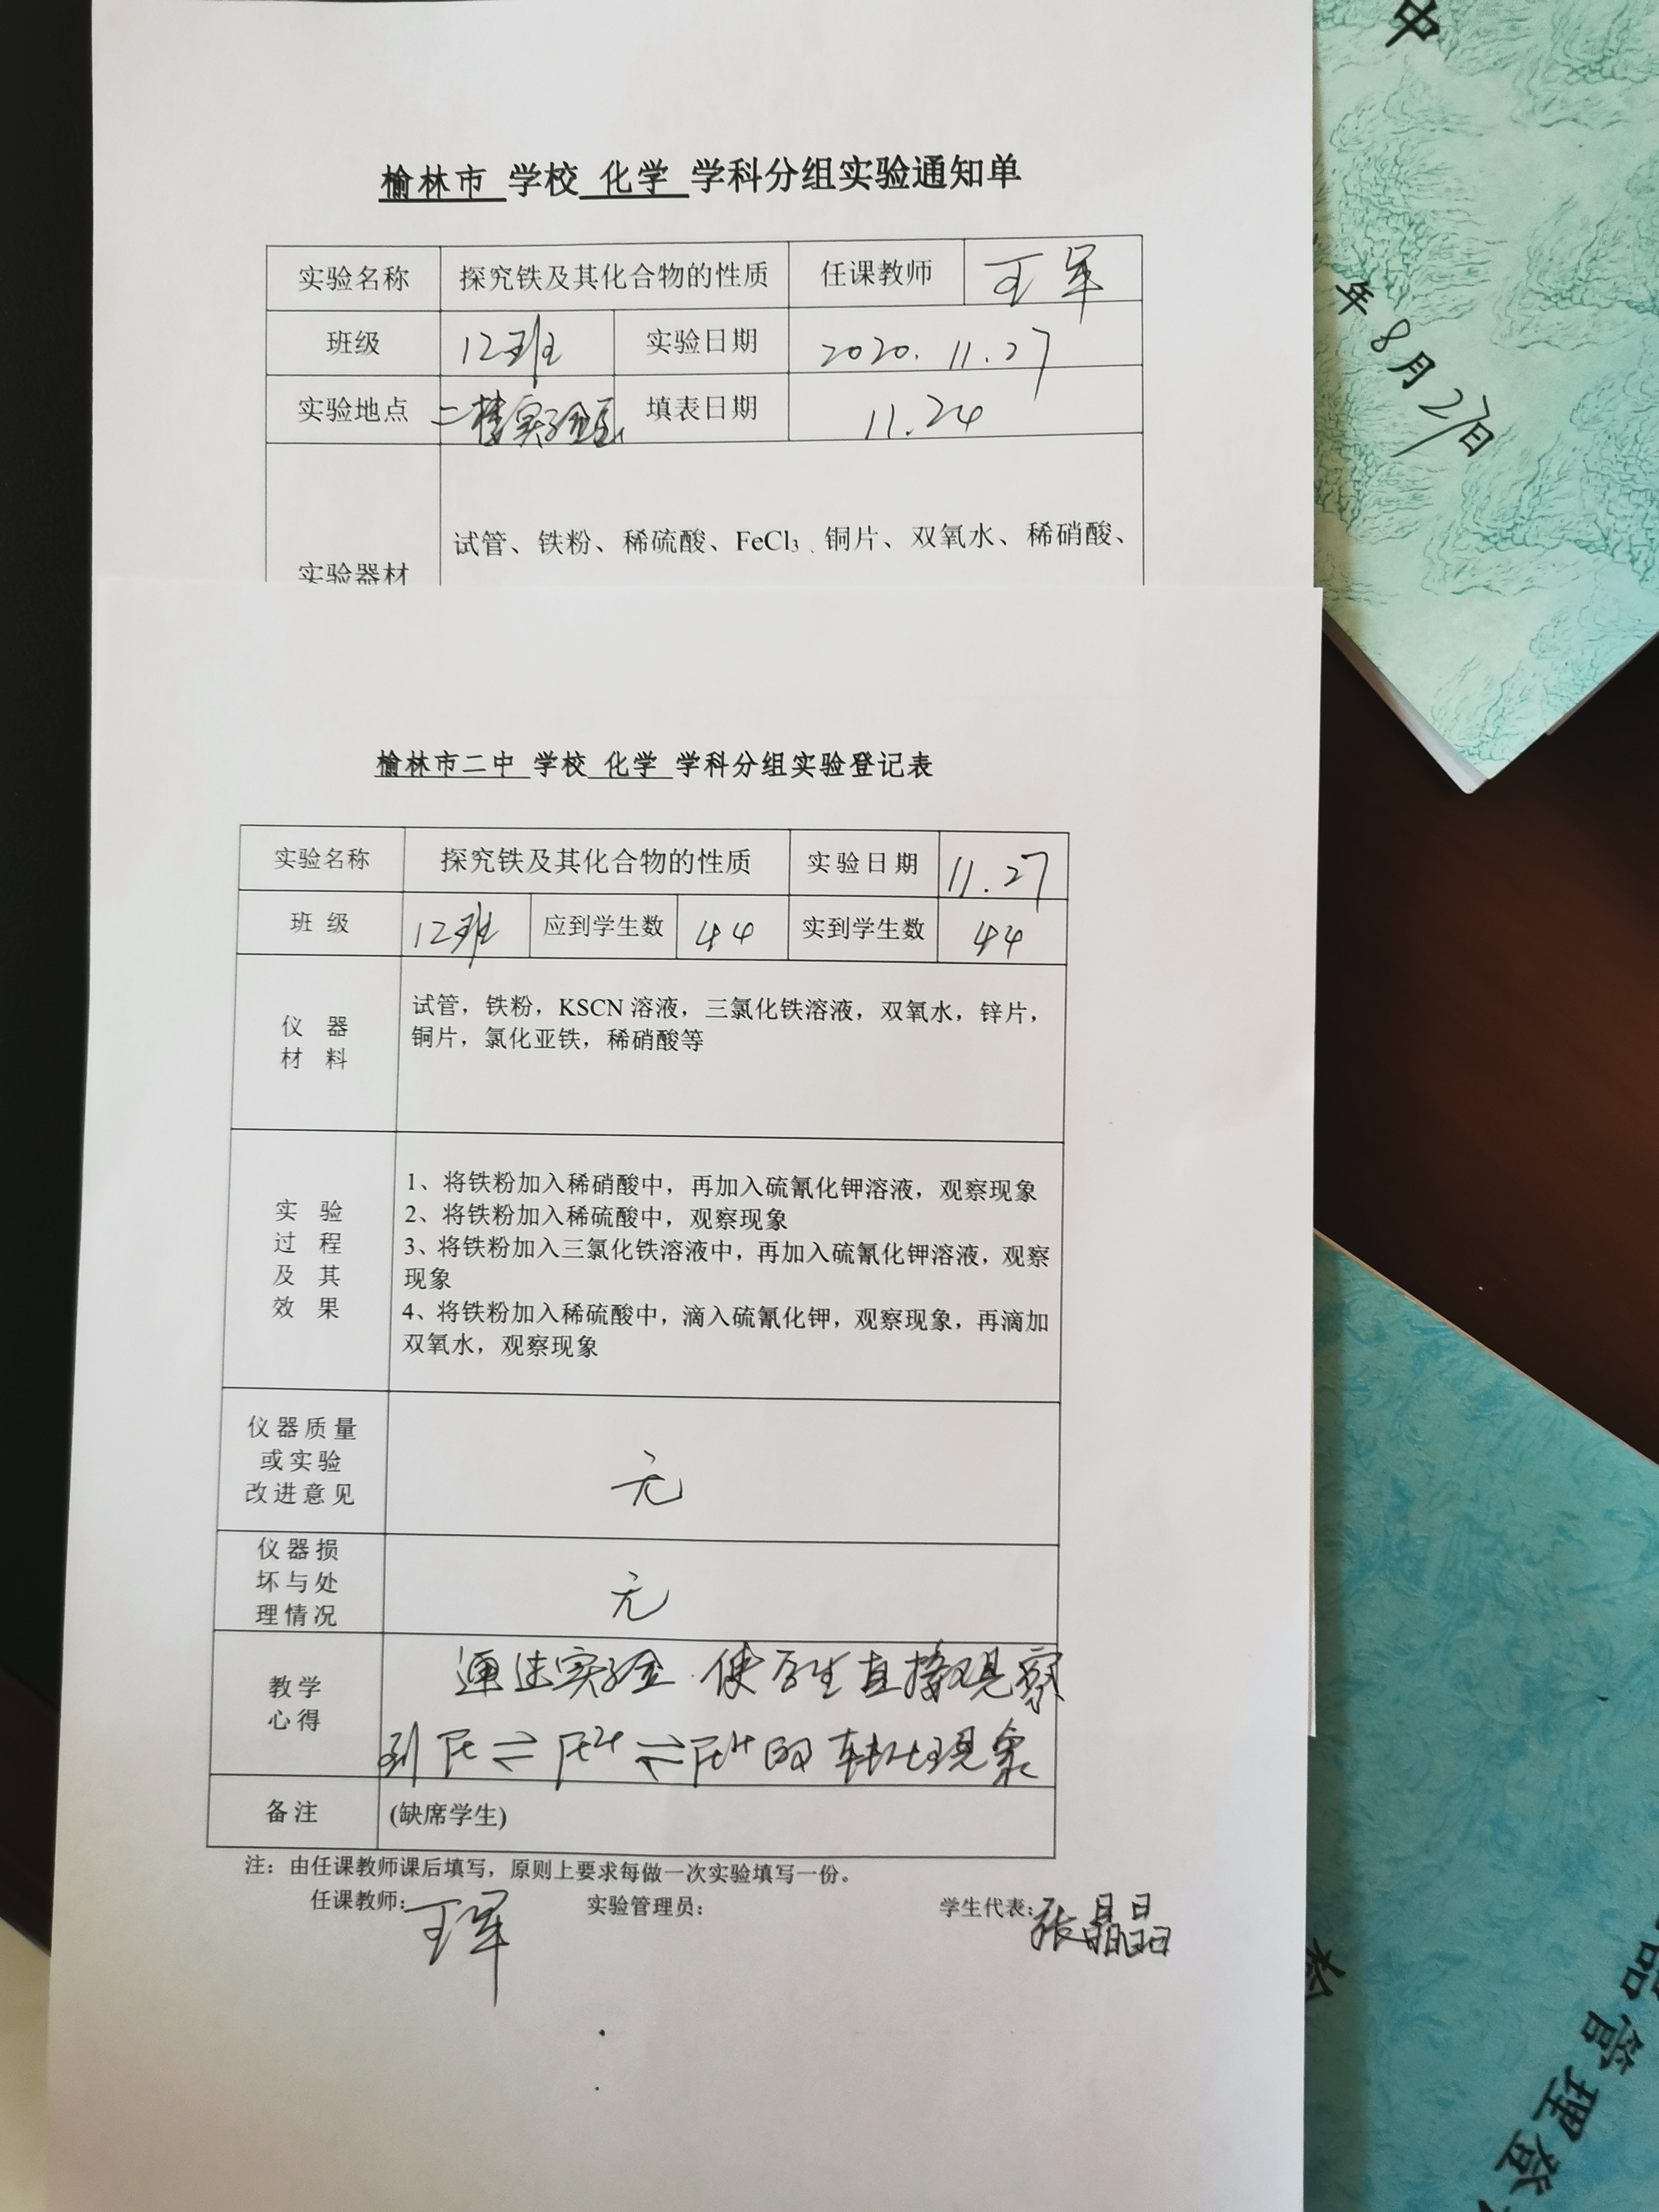 榆林市 学校 化学 学科分组实验通知单
实验名称 探究铁及其化合物的性质 任课教师 王军
班级 12班 实验日期 2020.11.27
实验地点 二楼实验室 填表日期 11.24
试管、铁粉、稀硫酸、FeCl₃、铜片、双氧水、稀硝酸、
实验器材
榆林市二中 学校 化学 学科分组实验登记表
实验名称 探究铁及其化合物的性质 实验日期 11.27
班 级 12班 应到学生数 44 实到学生数 44
仪 器
材 料
试管，铁粉，KSCN 溶液，三氯化铁溶液，双氧水，锌片，
铜片，氯化亚铁，稀硝酸等
实 验
过 程
及 其
效 果
1、将铁粉加入稀硝酸中，再加入硫氰化钾溶液，观察现象
2、将铁粉加入稀硫酸中，观察现象
3、将铁粉加入三氯化铁溶液中，再加入硫氰化钾溶液，观察
现象
4、将铁粉加入稀硫酸中，滴入硫氰化钾，观察现象，再滴加
双氧水，观察现象
仪器质量
或实验
改进意见
无
仪器损
坏与处
理情况
无
教学
心得
通过实验.使学生直接观察
到 Fe⇌Fe²⁺⇌Fe³⁺的转化现象
备注 (缺席学生)
注：由任课教师课后填写，原则上要求每做一次实验填写一份。
任课教师：王军 实验管理员： 学生代表：张晶晶
中
年8月27日
品管理登